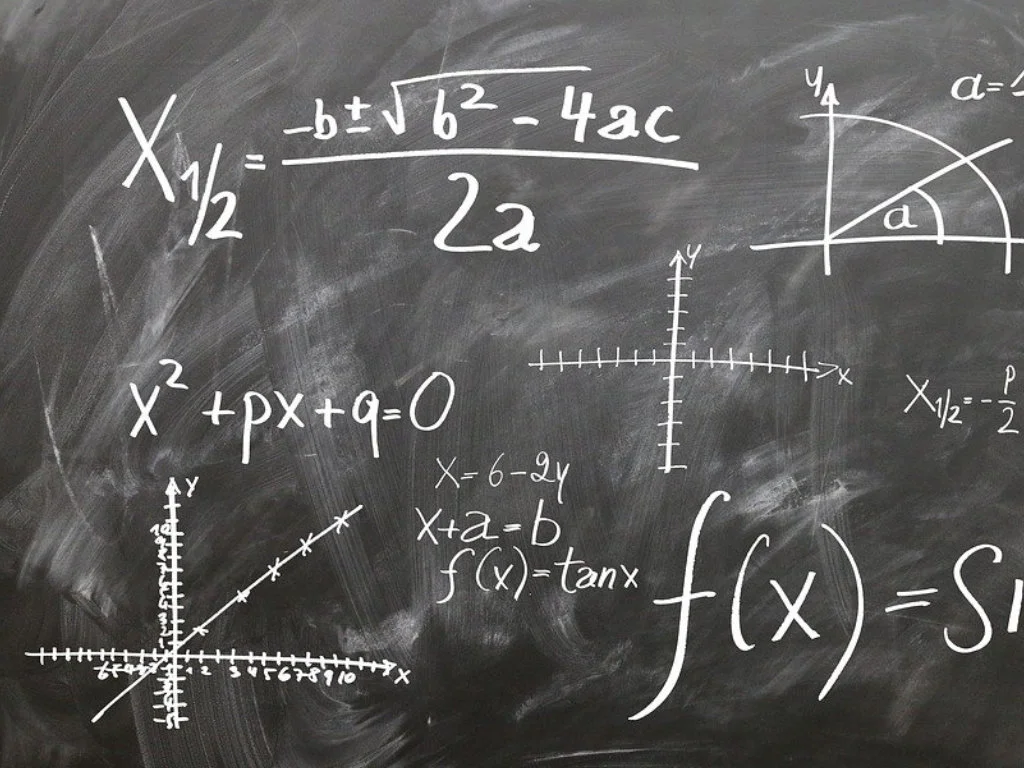 X₁/₂ = (-b±√(b² - 4ac))/(2a)
y
a=
a
y
x
x² +px+q=0
X₁/₂=-p/2
x=6-2y
x+a=b
f(x)=tanx
f(x)=Si
y
1 2 3 4 5 6 7 8 9 10 x